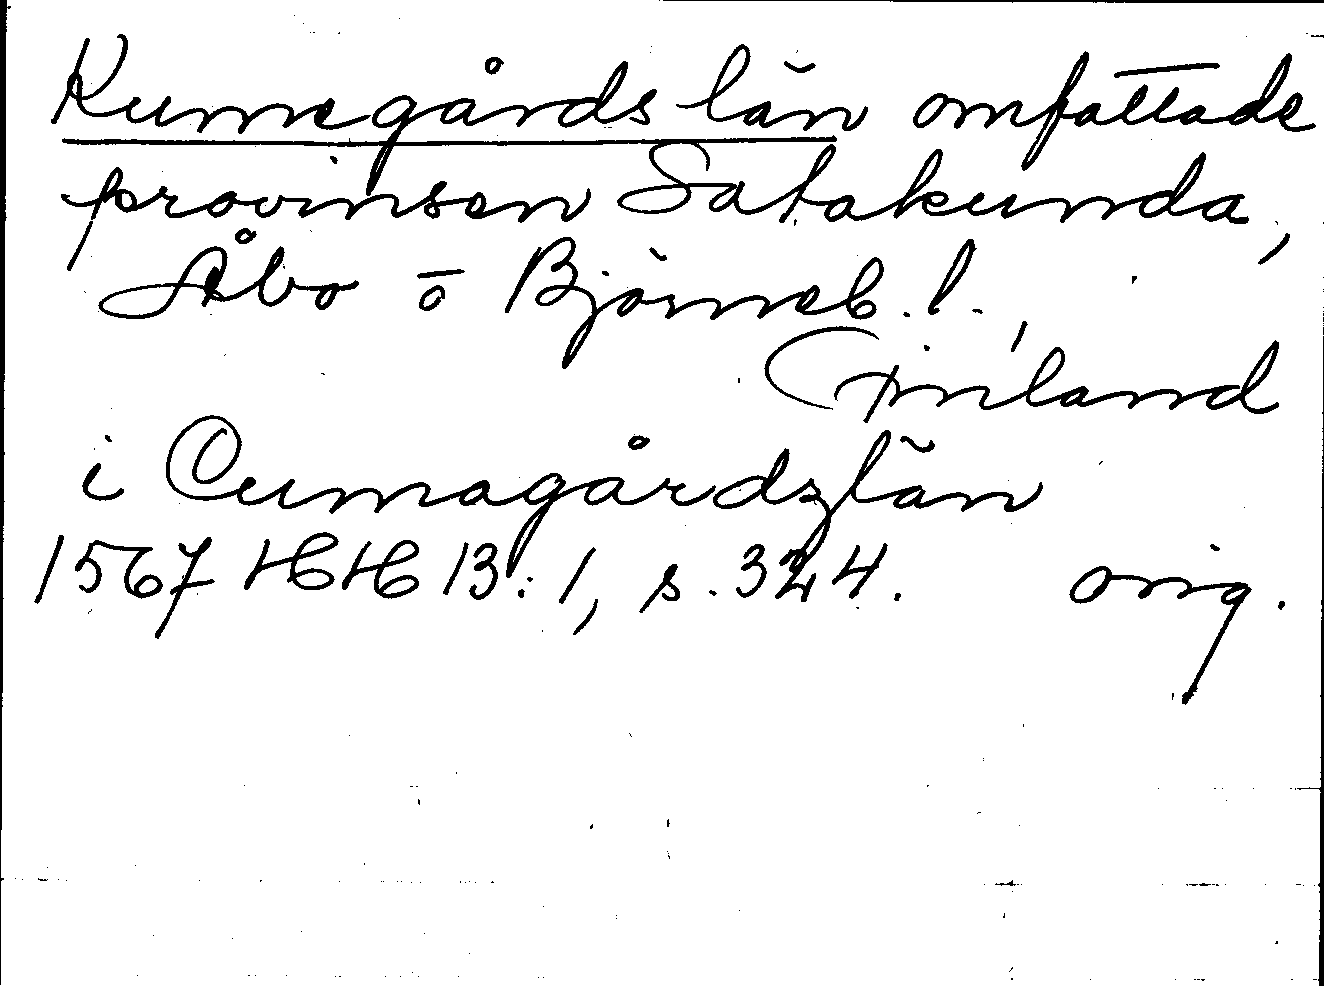 Kumegårds län omfattade
provinsen Satakunda,
Åbo o Björneb. l.,
Finland
i Cumagårdzlän
1567 HH 13:1, s. 324. orig.